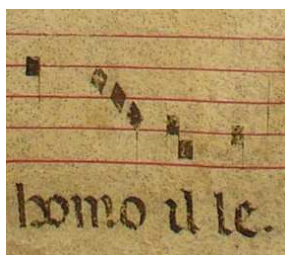 homo il le.